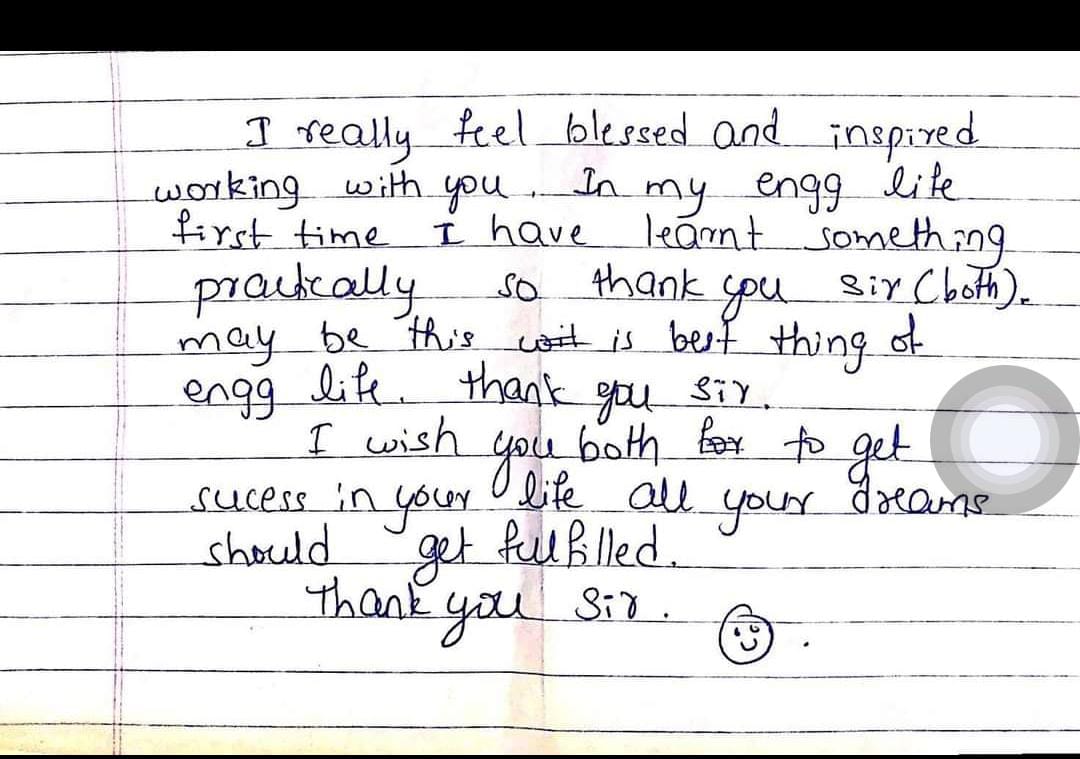 I really feel blessed and inspired
working with you. In my engg life
first time I have learnt something
practically so thank you sir (both).
may be this wait is best thing of
engg life. thank you sir.
I wish you both for to get
sucess in your life all your dreams
should get fullfilled.
Thank you Sir.